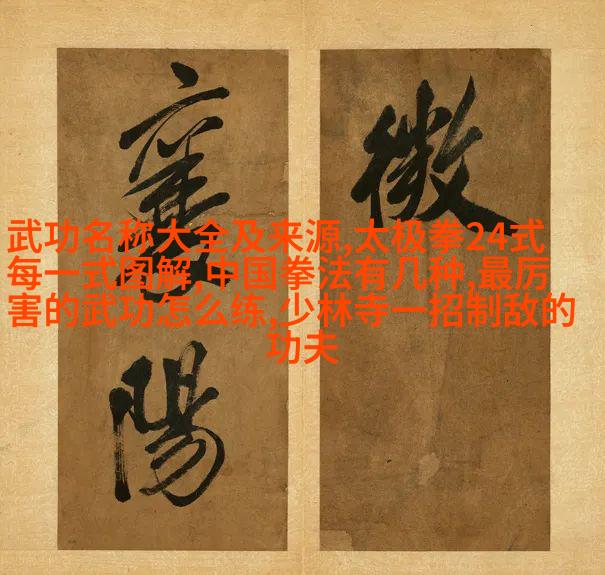 武功名称大全及来源,太极拳24式
每一式图解,中国拳法有几种,最厉
害的武功怎么练,少林寺一招制敌的
功夫
微
陽